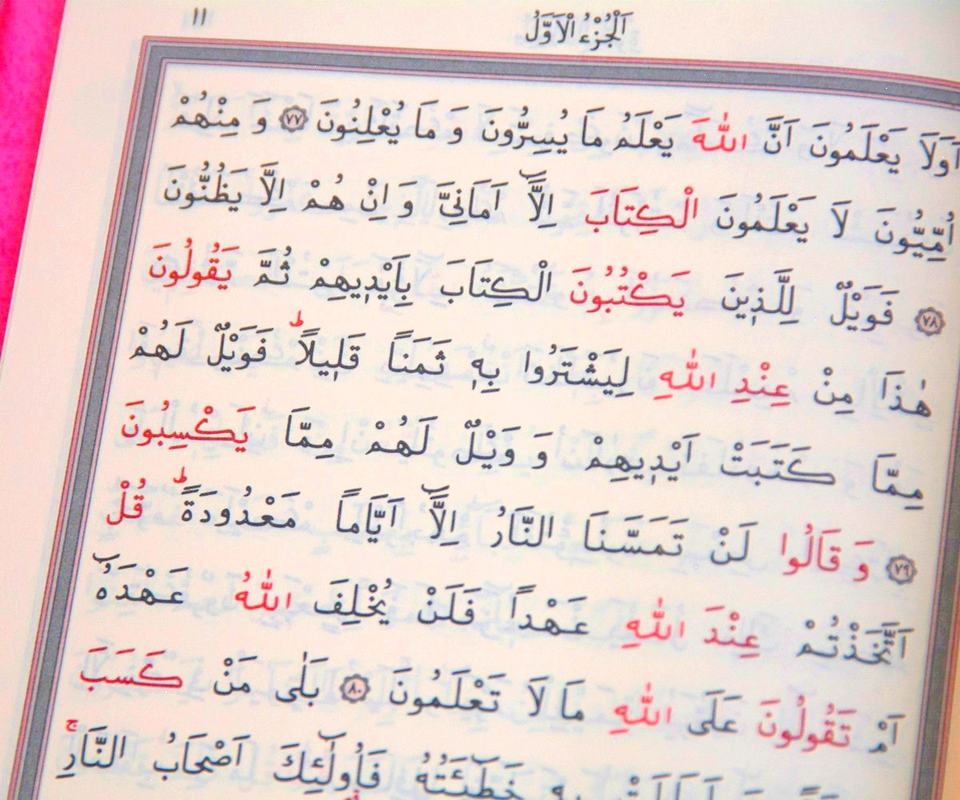 ١١
اَلْجُزْءُ الْاَوَّلُ
اَوَلَا يَعْلَمُونَ اَنَّ اللّٰهَ يَعْلَمُ مَا يُسِرُّونَ وَ مَا يُعْلِنُونَ ٧٧ وَ مِنْهُمْ
اُمِّيُّونَ لَا يَعْلَمُونَ الْكِتَابَ اِلَّٓا اَمَانِيَّ وَ اِنْ هُمْ اِلَّا يَظُنُّونَ
٧٨ فَوَيْلٌ لِلَّذٖينَ يَكْتُبُونَ الْكِتَابَ بِاَيْدٖيهِمْ ثُمَّ يَقُولُونَ
هٰذَا مِنْ عِنْدِ اللّٰهِ لِيَشْتَرُوا بِهٖ ثَمَنًا قَلٖيلًاؕ فَوَيْلٌ لَهُمْ
مِمَّا كَتَبَتْ اَيْدٖيهِمْ وَ وَيْلٌ لَهُمْ مِمَّا يَكْسِبُونَ
٧٩ وَ قَالُوا لَنْ تَمَسَّنَا النَّارُ اِلَّٓا اَيَّامًا مَعْدُودَةًؕ قُلْ
اَتَّخَذْتُمْ عِنْدَ اللّٰهِ عَهْدًا فَلَنْ يُخْلِفَ اللّٰهُ عَهْدَهُٓ
اَمْ تَقُولُونَ عَلَى اللّٰهِ مَا لَا تَعْلَمُونَ ٨٠ بَلٰى مَنْ كَسَبَ
بِهٖ خَطٖٓيـَٔتُهُ فَاُولٰٓئِكَ اَصْحَابُ النَّارِۚ